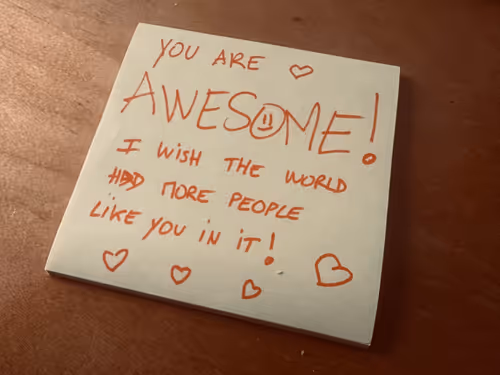 YOU ARE
AWESOME!
I WISH THE WORLD
HAD MORE PEOPLE
LIKE YOU IN IT!